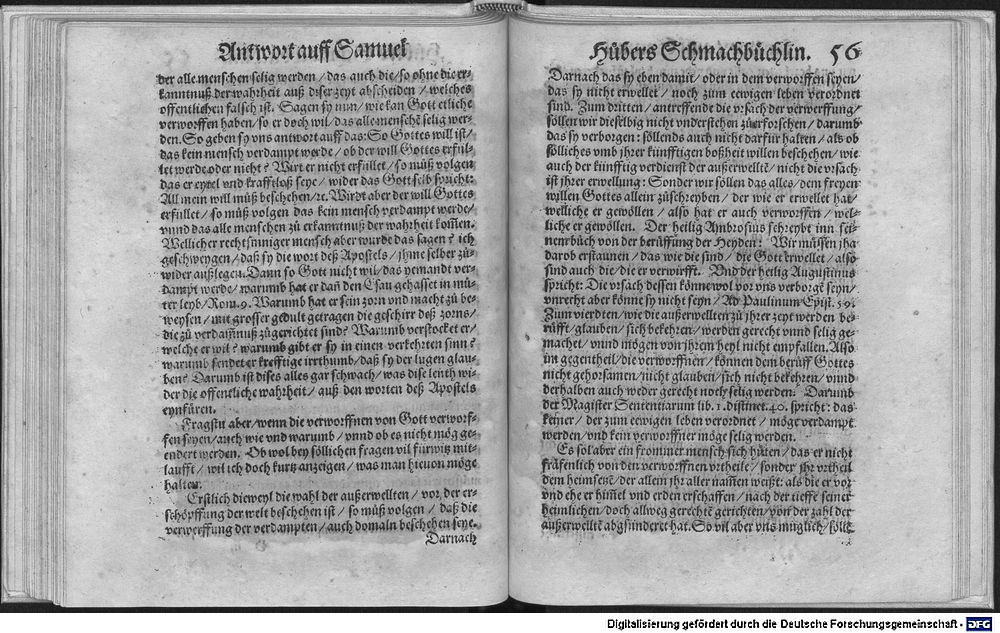 Antwort auff Samuel
der alle menschen selig werden / das auch die / so ohne die er-
kanntnuß der wahrheit auß diser zeyt abscheiden / welches
offentlichen falsch ist. Sagen sy nun / wie kan Gott etliche
verworffen haben / so er doch wil / das alle menschē selig wer-
den. So geben sy vns antwort auff das: So Gottes will ist /
das kein mensch verdampt werde / ob der will Gottes erfül-
let werde oder nicht? Wirt er nicht erfüllet / so müß volgen
das er eytel vnd krafftloß seye / wider das Gott selb spricht:
All mein will müß beschehen / ꝛc. Wirdt aber der will Gottes
erfüllet / so müß volgen das kein mensch verdampt werde /
vnnd das alle menschen zü erkanntnuß der wahrheit kom̄en.
Wellicher rechtsinniger mensch aber wurde das sagen? ich
geschweygen / daß sy die wort deß Apostels / jhme selber zü-
wider außlegen. Dann so Gott nicht wil / das yemandt ver-
dampt werde / warumb hat er dañ den Esau gehasset in mü-
ter leyb / Rom. 9. Warumb hat er sein zorn vnd macht zü be-
weysen / mit grosser gedult getragen die geschirr deß zorns /
die zü verdam̄nuß zügerichtet sind? Warumb verstocket er /
welche er wil? warumb gibt er sy in einen verkehrten sinn?
warumb sendet er krefftige irrthumb / daß sy der lugen glau-
ben? Darumb ist dises alles gar schwach / was dise leuth wi-
der die offentliche wahrheit / auß den worten deß Apostels
eynfüren.
Fragstu aber / wenn die verworffnen von Gott verworf-
fen seyen / auch wie vnd warumb / vnnd ob es nicht mög ge-
endert werden. Ob wol bey söllichen fragen vil fürwitz mit-
laufft / wil ich doch kurtz anzeigen / was man hieuon möge
halten.
Erstlich dieweyl die wahl der außerwellten / vor der er-
schöpffung der welt beschehen ist / so müß volgen / daß die
verwerffung der verdampten / auch domaln beschehen seye.
Darnach
Hübers Schmachbüchlin. 56
Darnach das sy eben damit / oder in dem verworffen seyen /
das sy nicht erwellet / noch zum eewigen leben verordnet
sind. Zum dritten / antreffende die vrsach der verwerffung /
söllen wir dieselbig nicht vnderstehen züerforschen / darumb
das sy verborgen: söllends auch nicht darfür halten / als ob
sölliches vmb jhrer künfftigen boßheit willen beschehen / wie
auch der künfftig verdienst der außerwelltē / nicht die vrsach
ist jhrer erwellung: Sonder wir söllen das alles / dem freyen
willen Gottes allein züschreyben / der wie er erwellet hat /
welliche er gewöllen / also hat er auch verworffen / wel-
liche er gewöllen. Der heilig Ambrosius schreybt inn sei-
nem büch von der berüffung der Heyden: Wir müssen jha
darob erstaunen / das wie die sind / die Gott erwellet / also
sind auch die / die er verwirfft. Vnd der heilig Augustinus
spricht: Die vrsach dessen könne wol vor vns verborgē seyn /
vnrecht aber könne sy nicht seyn / Ad Paulinum Epist. 59.
Zum vierdten / wie die außerwellten zü jhrer zeyt werden be-
rüfft / glauben / sich bekehren / werden gerecht vnnd selig ge-
machet / vnnd mögen von jhrem heyl nicht empfallen. Also
im gegentheil / die verworffnen / können dem berüff Gottes
nicht gehorsamen / nicht glauben / sich nicht bekehren / vnnd
derhalben auch weder gerecht noch selig werden: Darumb
der Magister Sententiarum lib. 1. distinct. 40. spricht: das
keiner / der zum eewigen leben verordnet / möge verdampt
werden / vnd kein verworffner möge selig werden.
Es sol aber ein frommer mensch sich hüten / das er nicht
fräfenlich von den verworffnen vrtheile / sonder jhr vrtheil
dem heimsetze / der allein jhr aller nam̄en weißt: als die er vor
vnd ehe er him̄el vnd erden erschaffen / nach der tieffe seiner
heimlichen / doch allweg gerechtē gerichten / von der zahl der
außerwelltē abgsünderet hat. So vil aber vns müglich / sölle
Digitalisierung gefördert durch die Deutsche Forschungsgemeinschaft - DFG